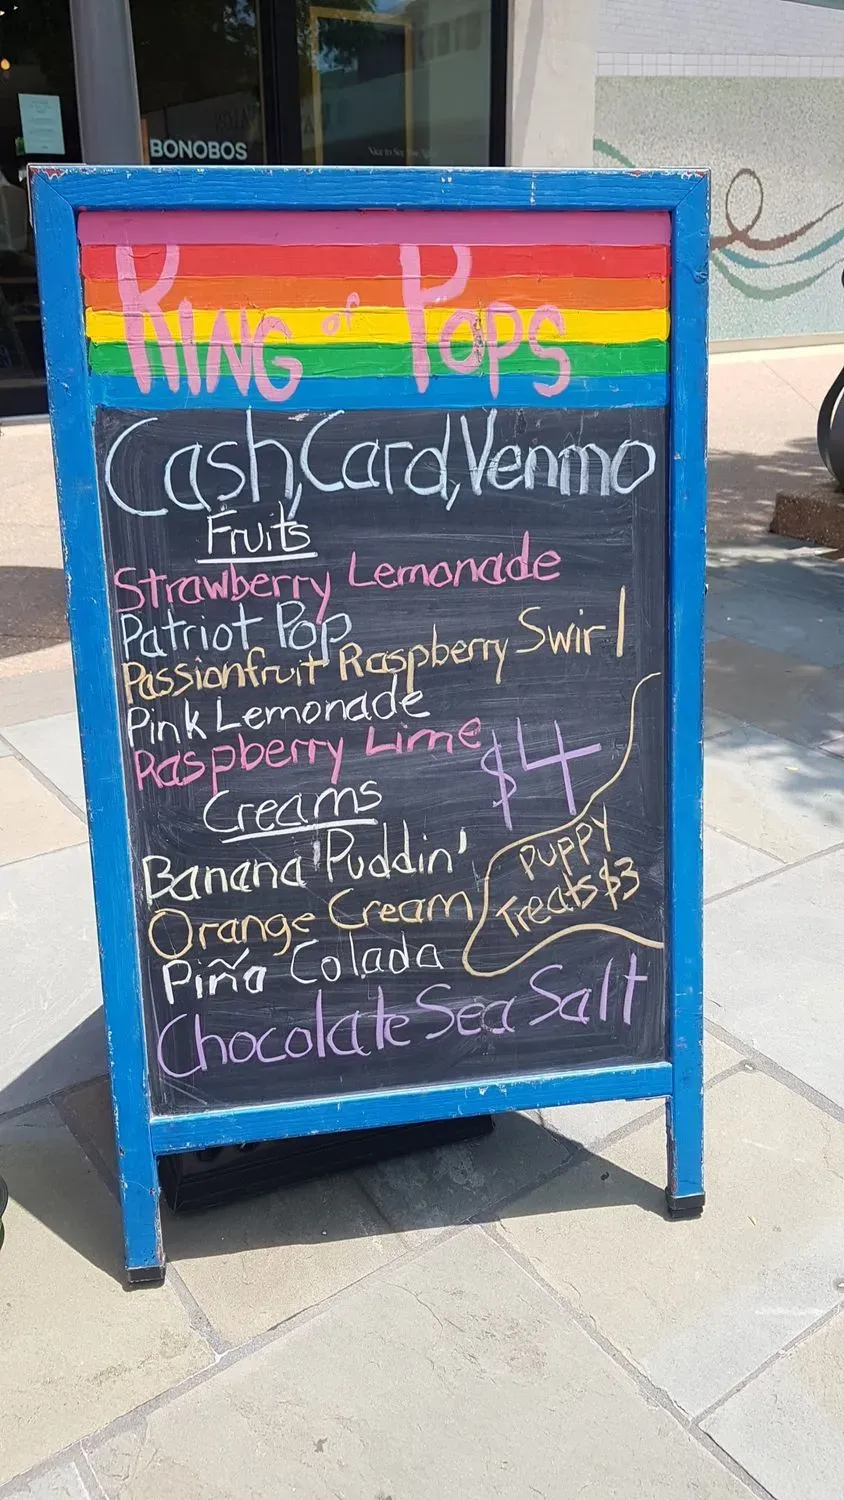 BONOBOS
KING of POPS
Cash, Card, Venmo
Fruits
Strawberry Lemonade
Patriot Pop
Passionfruit Raspberry Swirl
Pink Lemonade
Raspberry Lime
$4
Creams
Banana Puddin'
Orange Cream
Piña Colada
Chocolate Sea Salt
PUPPY
Treats $3